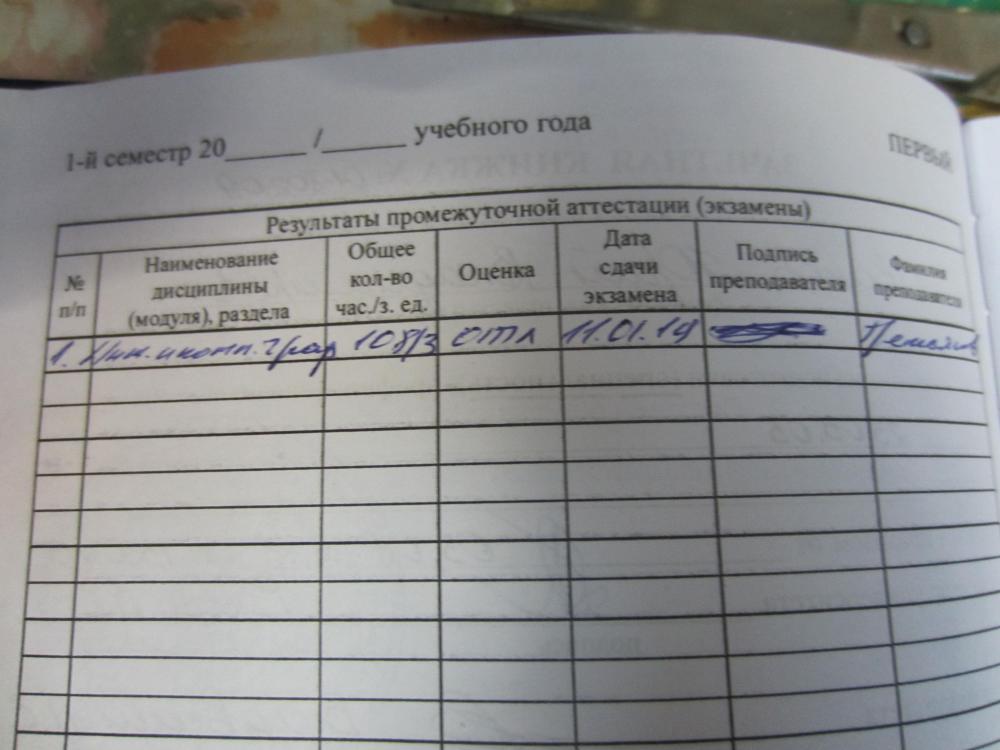 1-й семестр 20______ /______ учебного года
ПЕРВЫЙ
Результаты промежуточной аттестации (экзамены)
№ п/п
Наименование дисциплины (модуля), раздела
Общее кол-во час./з. ед.
Оценка
Дата сдачи экзамена
Подпись преподавателя
Фамилия преподавателя
1. Инж. и комп. граф 108/3 отл 11.01.19